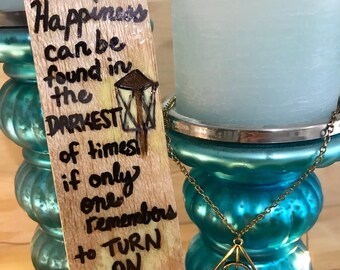 Happiness
can be
found in
the
DARKEST
of times
if only
one
remembers
to TURN
ON